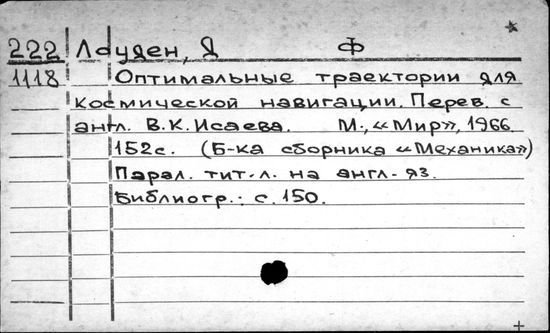 222 Лоуден, Д Ф
1118 Оптимальные траектории для
космической навигации. Перев. с
англ. В.К.Исаева. М., «Мир», 1966.
152с. (Б-ка сборника «Механика»)
Парал. тит.л. на англ.яз.
Библиогр.: с.150.